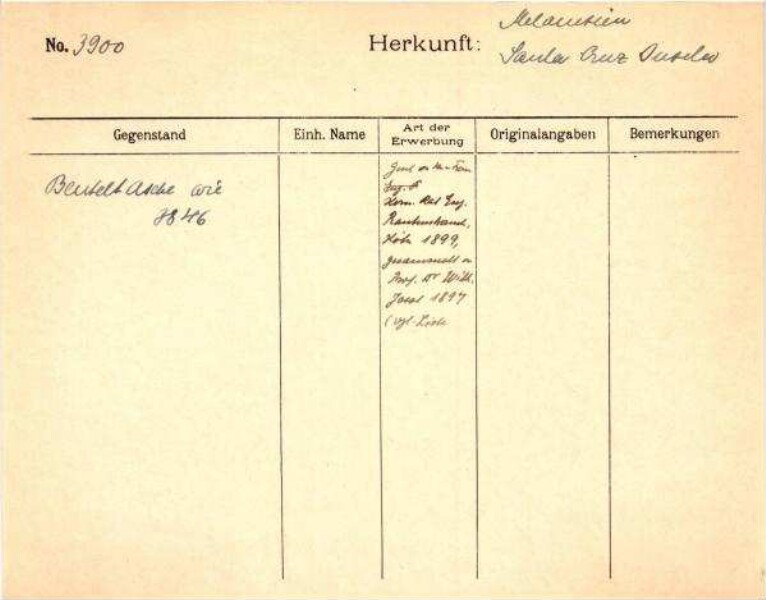 No. 3900
Herkunft:
Melanesien
Santa Cruz Inseln
Gegenstand
Einh. Name
Art der
Erwerbung
Originalangaben
Bemerkungen
Beuteltasche wie
3846
Gesch. v. Hrn. u. Frau
Kom. Rat Eug.
Rautenstrauch,
Köln 1899,
gesammelt v.
Prof. Dr Wilh.
Joest 1897
(vgl. Liste